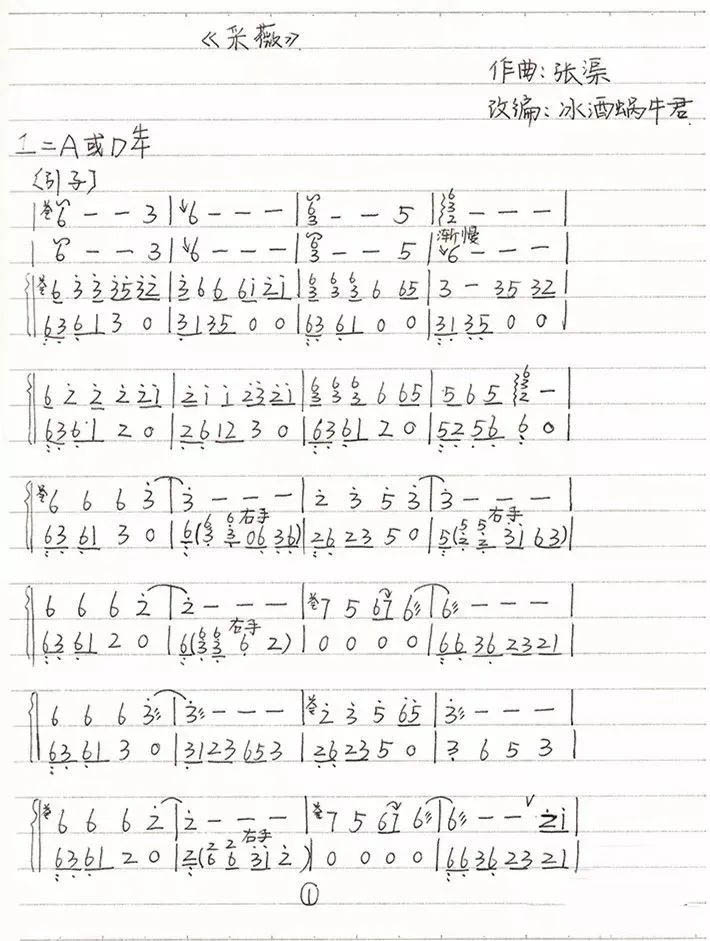 《采薇》
作曲：张渠
改编：冰酒蜗牛君
1=A或D
〔引子〕
| 6 - - 3 | 6 - - - | 6 3 - - 5 | 6 3 2 - - - |
渐慢
| 6 - - 3 | 6 - - - | 6 3 - - 5 | 6 - - - |
6 3 3 3 5 3 2 | 3 6 6 6 1 2 1 | 6 3 6 3 6 3 6 6 5 | 3 - 3 5 3 2 |
6 3 6 1 3 0 | 3 1 3 5 0 0 | 6 3 6 1 0 0 | 3 1 3 5 0 0 |
6 2 2 2 2 1 | 2 1 1 2 3 2 1 | 6 3 6 3 6 3 6 6 5 | 5 6 5 6 3 2 - |
6 3 6 1 2 0 | 2 6 1 2 3 0 | 6 3 6 1 2 0 | 5 2 5 6 6 0 |
6 6 6 3 | 3 - - - | 2 3 5 3 | 3 - - - |
右手 右手
6 3 6 1 3 0 | 6 ( 6 3 6 3 0 6 3 6 ) | 2 6 2 3 5 0 | 5 ( 5 2 5 2 3 1 6 3 ) |
6 6 6 2 | 2 - - - | 7 5 6 7 6 | 6 - - - |
右手
6 3 6 1 2 0 | 6 ( 6 3 6 3 6 2 ) | 0 0 0 0 | 6 6 3 6 2 3 2 1 |
6 6 6 3 | 3 - - - | 2 3 5 6 5 | 3 - - - |
6 3 6 1 3 0 | 3 1 2 3 6 5 3 | 2 6 2 3 5 0 | 3 6 5 3 |
6 6 6 2 | 2 - - - | 7 5 6 7 6 | 6 - - V 2 1 |
右手
6 3 6 1 2 0 | 2 ( 2 6 2 6 3 1 2 ) | 0 0 0 0 | 6 6 3 6 2 3 2 1 |
①